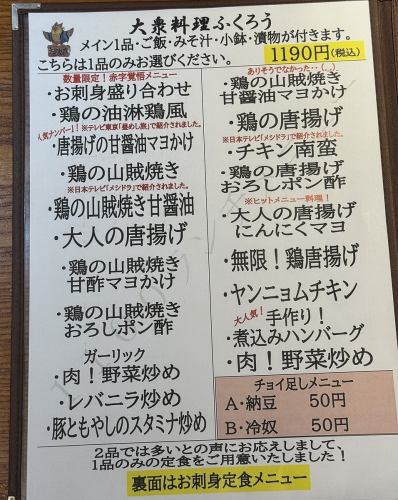 大衆料理ふくろう
メイン1品・ご飯・みそ汁・小鉢・漬物が付きます。
こちらは1品のみお選びください。
1190円(税込)
数量限定!赤字覚悟メニュー
・お刺身盛り合わせ
・鶏の油淋鶏風
人気ナンバー1!※テレビ東京「昼めし旅」で紹介されました。
・唐揚げの甘醤油マヨかけ
・鶏の山賊焼き
※日本テレビ「メシドラ」で紹介されました。
・鶏の山賊焼き甘醤油
・大人の唐揚げ
・鶏の山賊焼き
甘酢マヨかけ
・鶏の山賊焼き
おろしポン酢
ガーリック
・肉!野菜炒め
・レバニラ炒め
・豚ともやしのスタミナ炒め
ありそうでなかった・・(…)
・鶏の山賊焼き
甘醤油マヨかけ
・鶏の唐揚げ
※日本テレビ「メシドラ」で紹介されました。
・チキン南蛮
・鶏の唐揚げ
おろしポン酢
※ヒットメニュー料理!
・大人の唐揚げ
にんにくマヨ
・無限!鶏唐揚げ
・ヤンニョムチキン
大人気!
手作り!
・煮込みハンバーグ
・肉!野菜炒め
チョイ足しメニュー
A・納豆 50円
B・冷奴 50円
2品では多いとの声にお応えしまして、
1品のみの定食をご用意いたしました!
裏面はお刺身定食メニュー